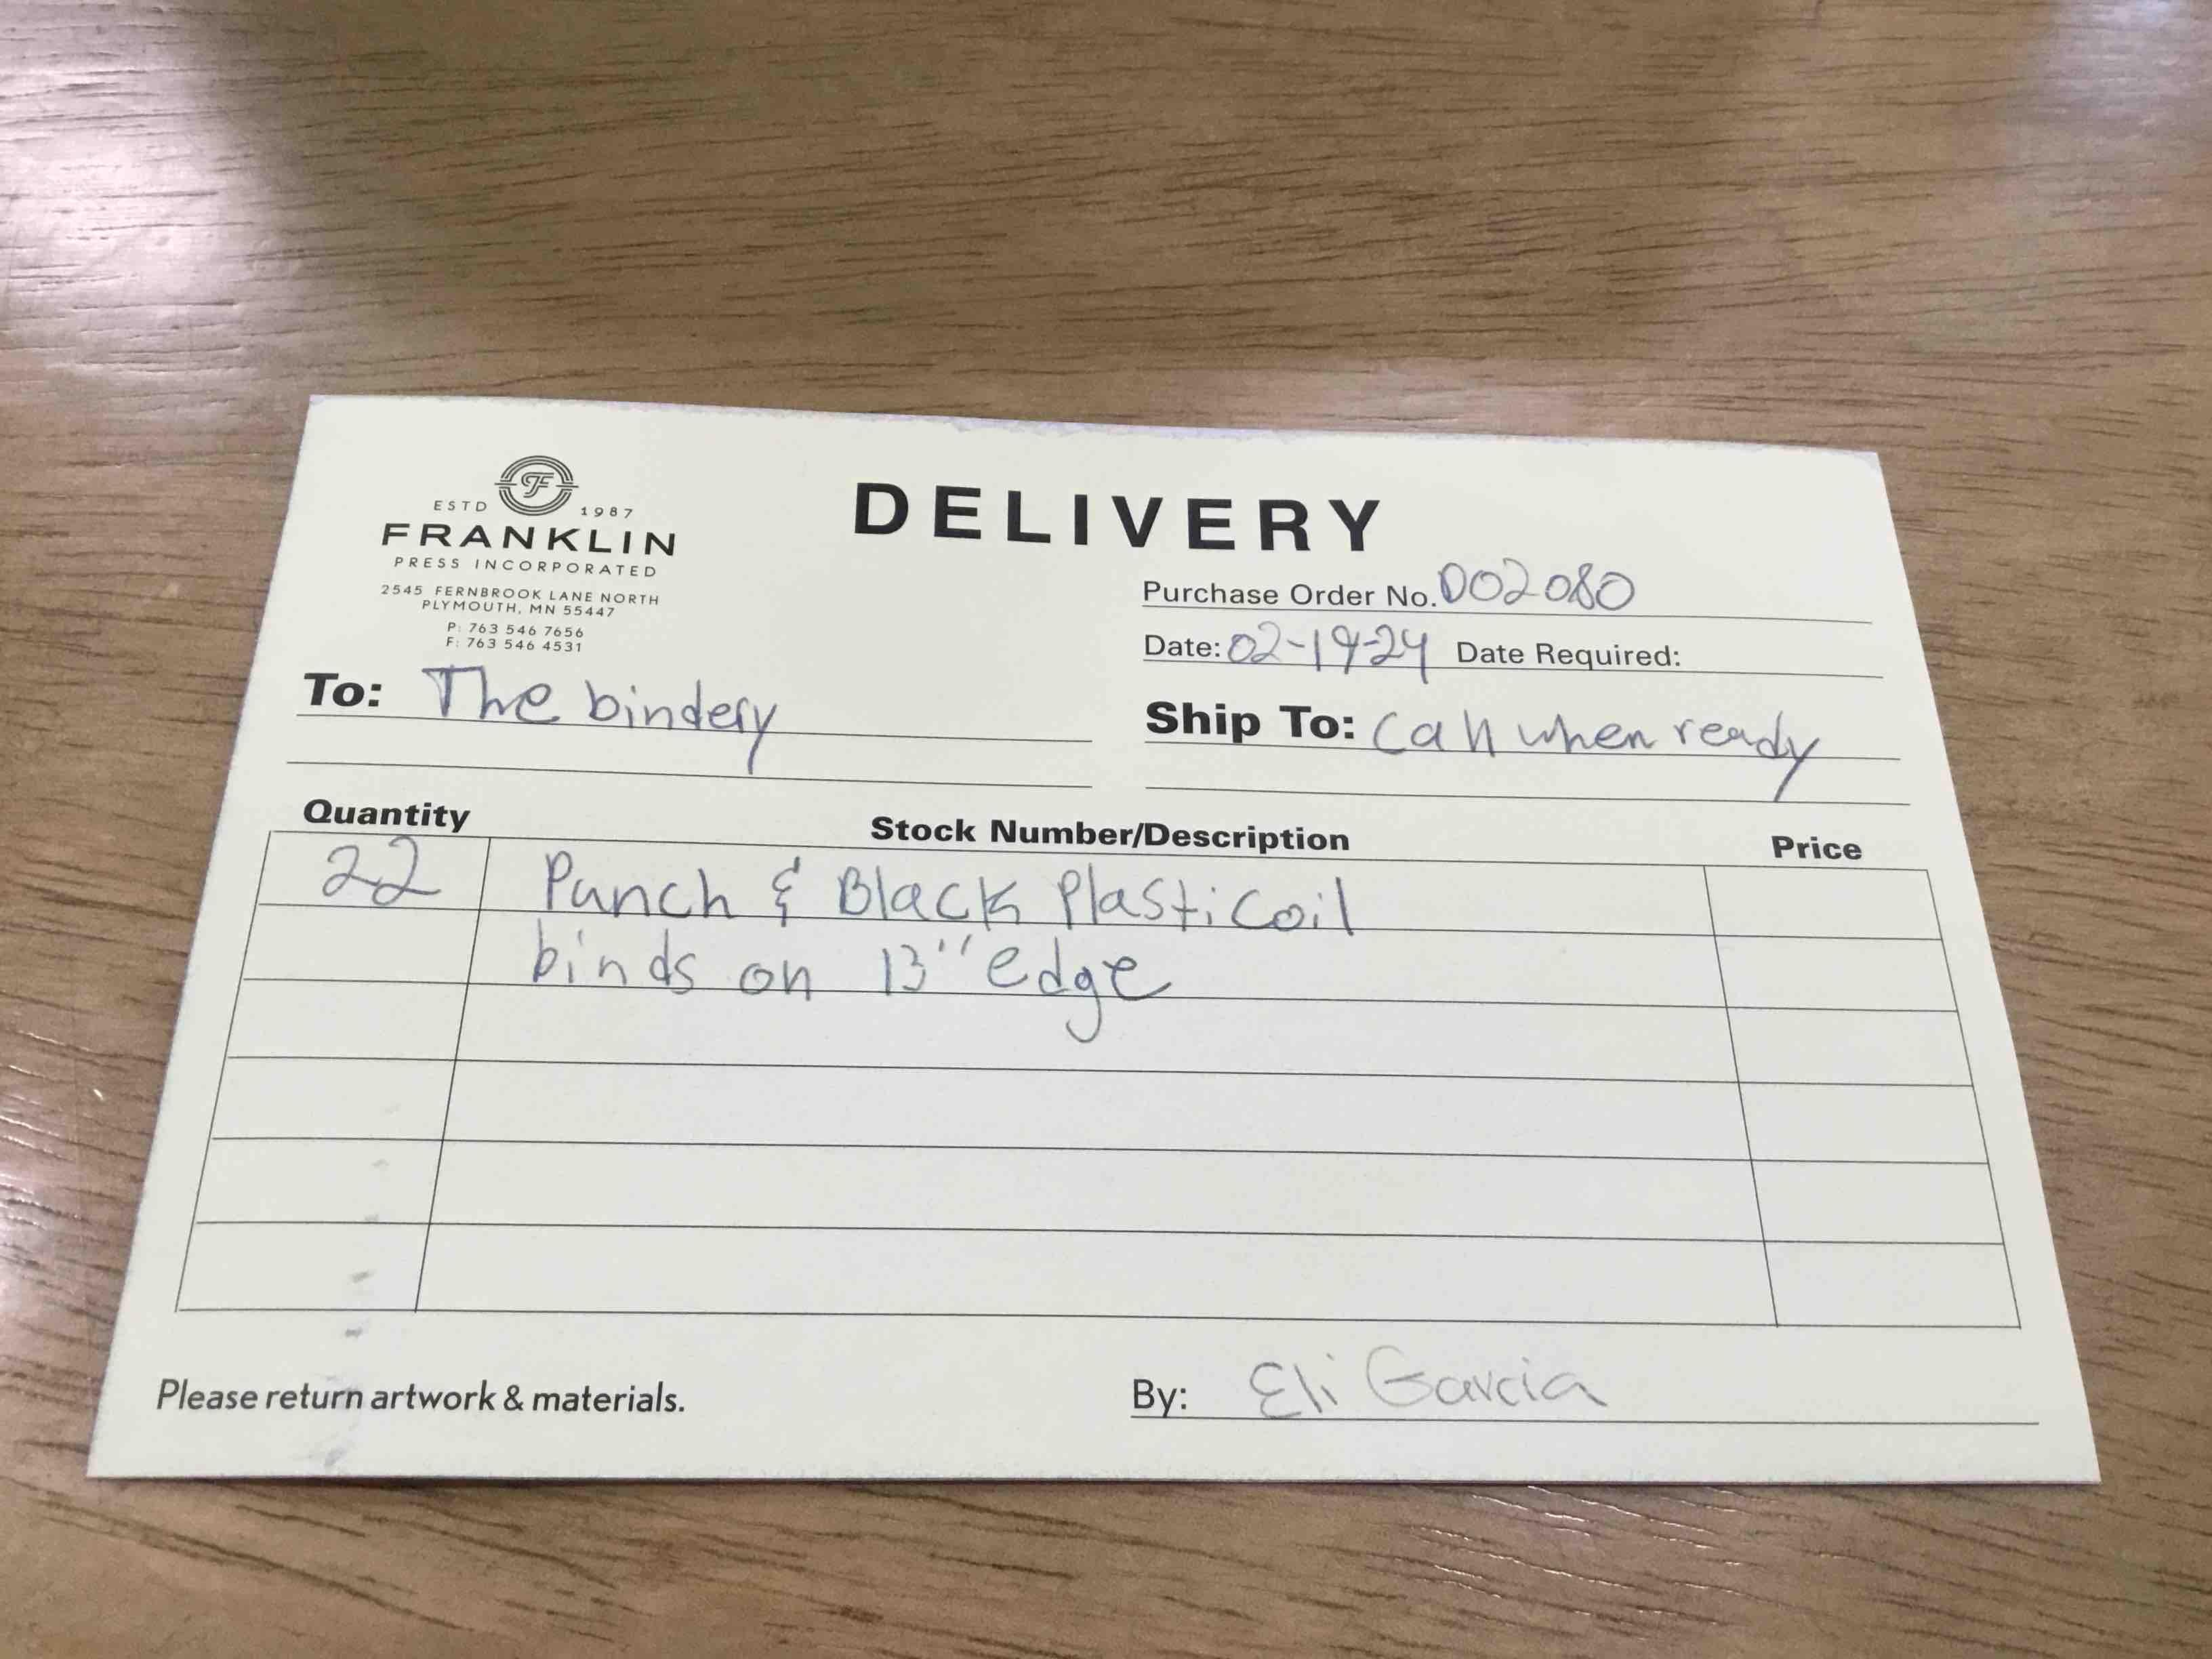 ESTD 1987
FRANKLIN
PRESS INCORPORATED
2545 FERNBROOK LANE NORTH
PLYMOUTH, MN 55447
P: 763 546 7656
F: 763 546 4531
DELIVERY
Purchase Order No. 002080
Date: 02-19-24 Date Required:
To: The bindery
Ship To: Call when ready
Quantity Stock Number/Description Price
22 Punch & Black Plasticoil
binds on 13" edge
Please return artwork & materials.
By: Eli Garcia